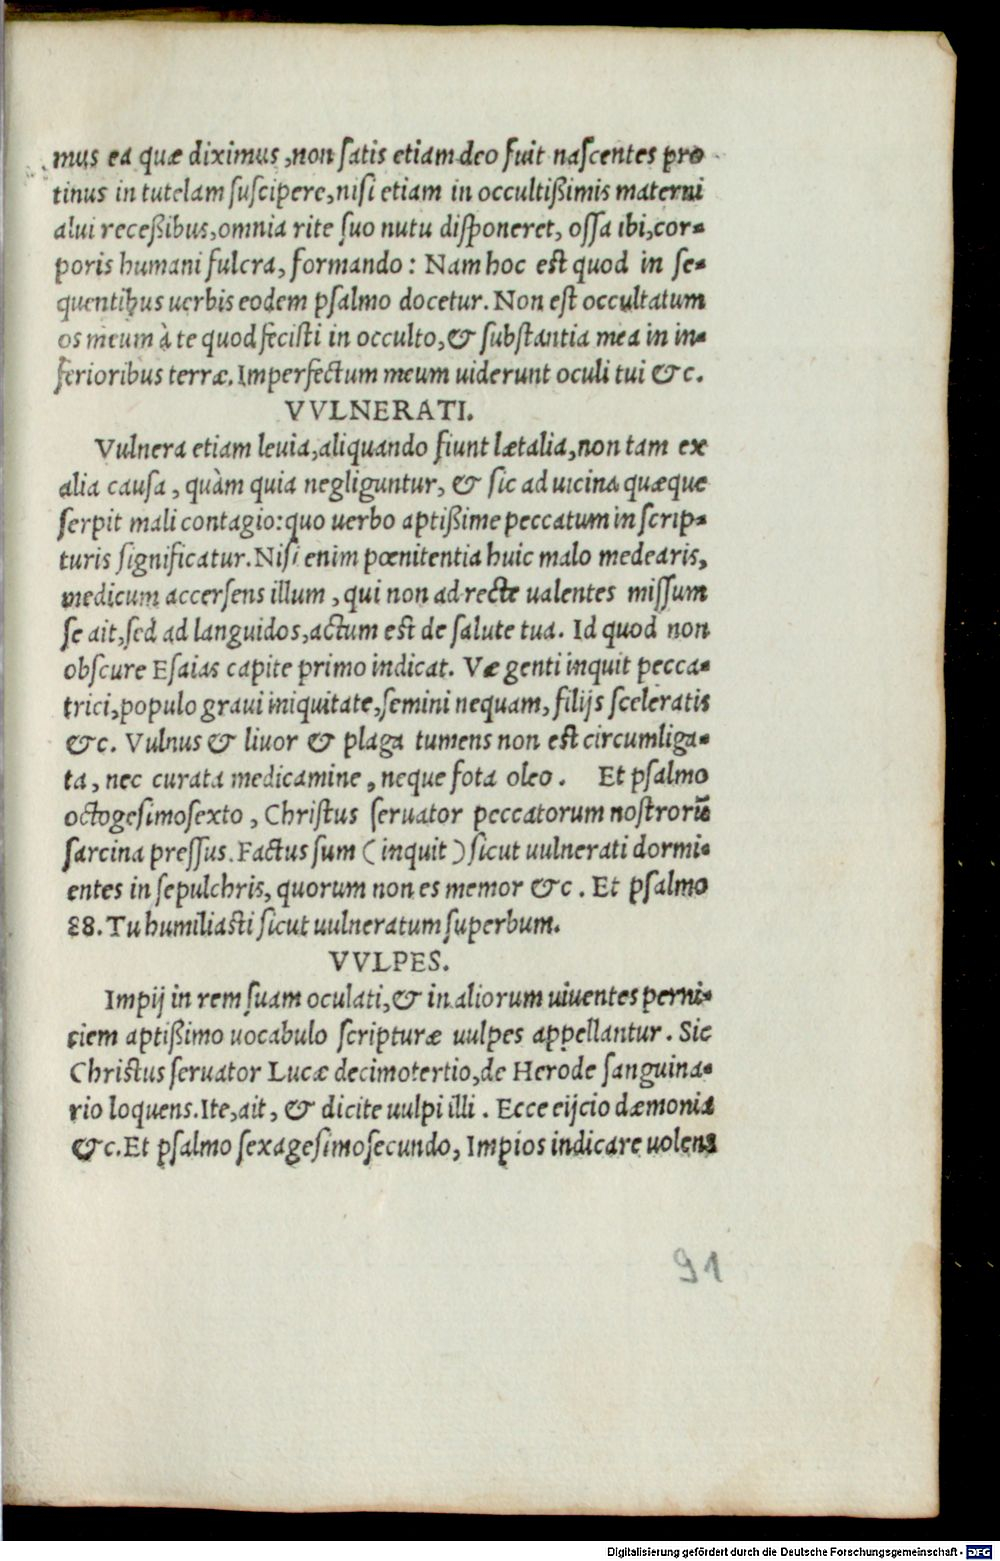 mus ea quæ diximus, non satis etiam deo fuit nascentes pro
tinus in tutelam suscipere, nisi etiam in occultißimis materni
alui receßibus, omnia rite suo nutu disponeret, ossa ibi, cor-
poris humani fulcra, formando: Nam hoc est quod in se-
quentibus uerbis eodem psalmo docetur. Non est occultatum
os meum à te quod fecisti in occulto, & substantia mea in in-
ferioribus terræ. Imperfectum meum uiderunt oculi tui &c.
VVLNERATI.
Vulnera etiam leuia, aliquando fiunt lætalia, non tam ex
alia causa, quàm quia negliguntur, & sic ad uicina quæque
serpit mali contagio: quo uerbo aptißime peccatum in scrip-
turis significatur. Nisi enim pœnitentia huic malo medearis,
medicum accersens illum, qui non ad recte ualentes missum
se ait, sed ad languidos, actum est de salute tua. Id quod non
obscure Esaias capite primo indicat. Væ genti inquit pecca-
trici, populo graui iniquitate, semini nequam, filijs sceleratis
&c. Vulnus & liuor & plaga tumens non est circumliga-
ta, nec curata medicamine, neque fota oleo. Et psalmo
octogesimosexto, Christus seruator peccatorum nostrorũ
sarcina pressus. Factus sum (inquit) sicut uulnerati dormi-
entes in sepulchris, quorum non es memor &c. Et psalmo
88. Tu humiliasti sicut uulneratum superbum.
VVLPES.
Impij in rem suam oculati, & in aliorum uiuentes perni-
ciem aptißimo uocabulo scripturæ uulpes appellantur. Sic
Christus seruator Lucæ decimotertio, de Herode sanguina-
rio loquens. Ite, ait, & dicite uulpi illi. Ecce eijcio dæmonia
&c. Et psalmo sexagesimosecundo, Impios indicare uolens
91
Digitalisierung gefördert durch die Deutsche Forschungsgemeinschaft - DFG